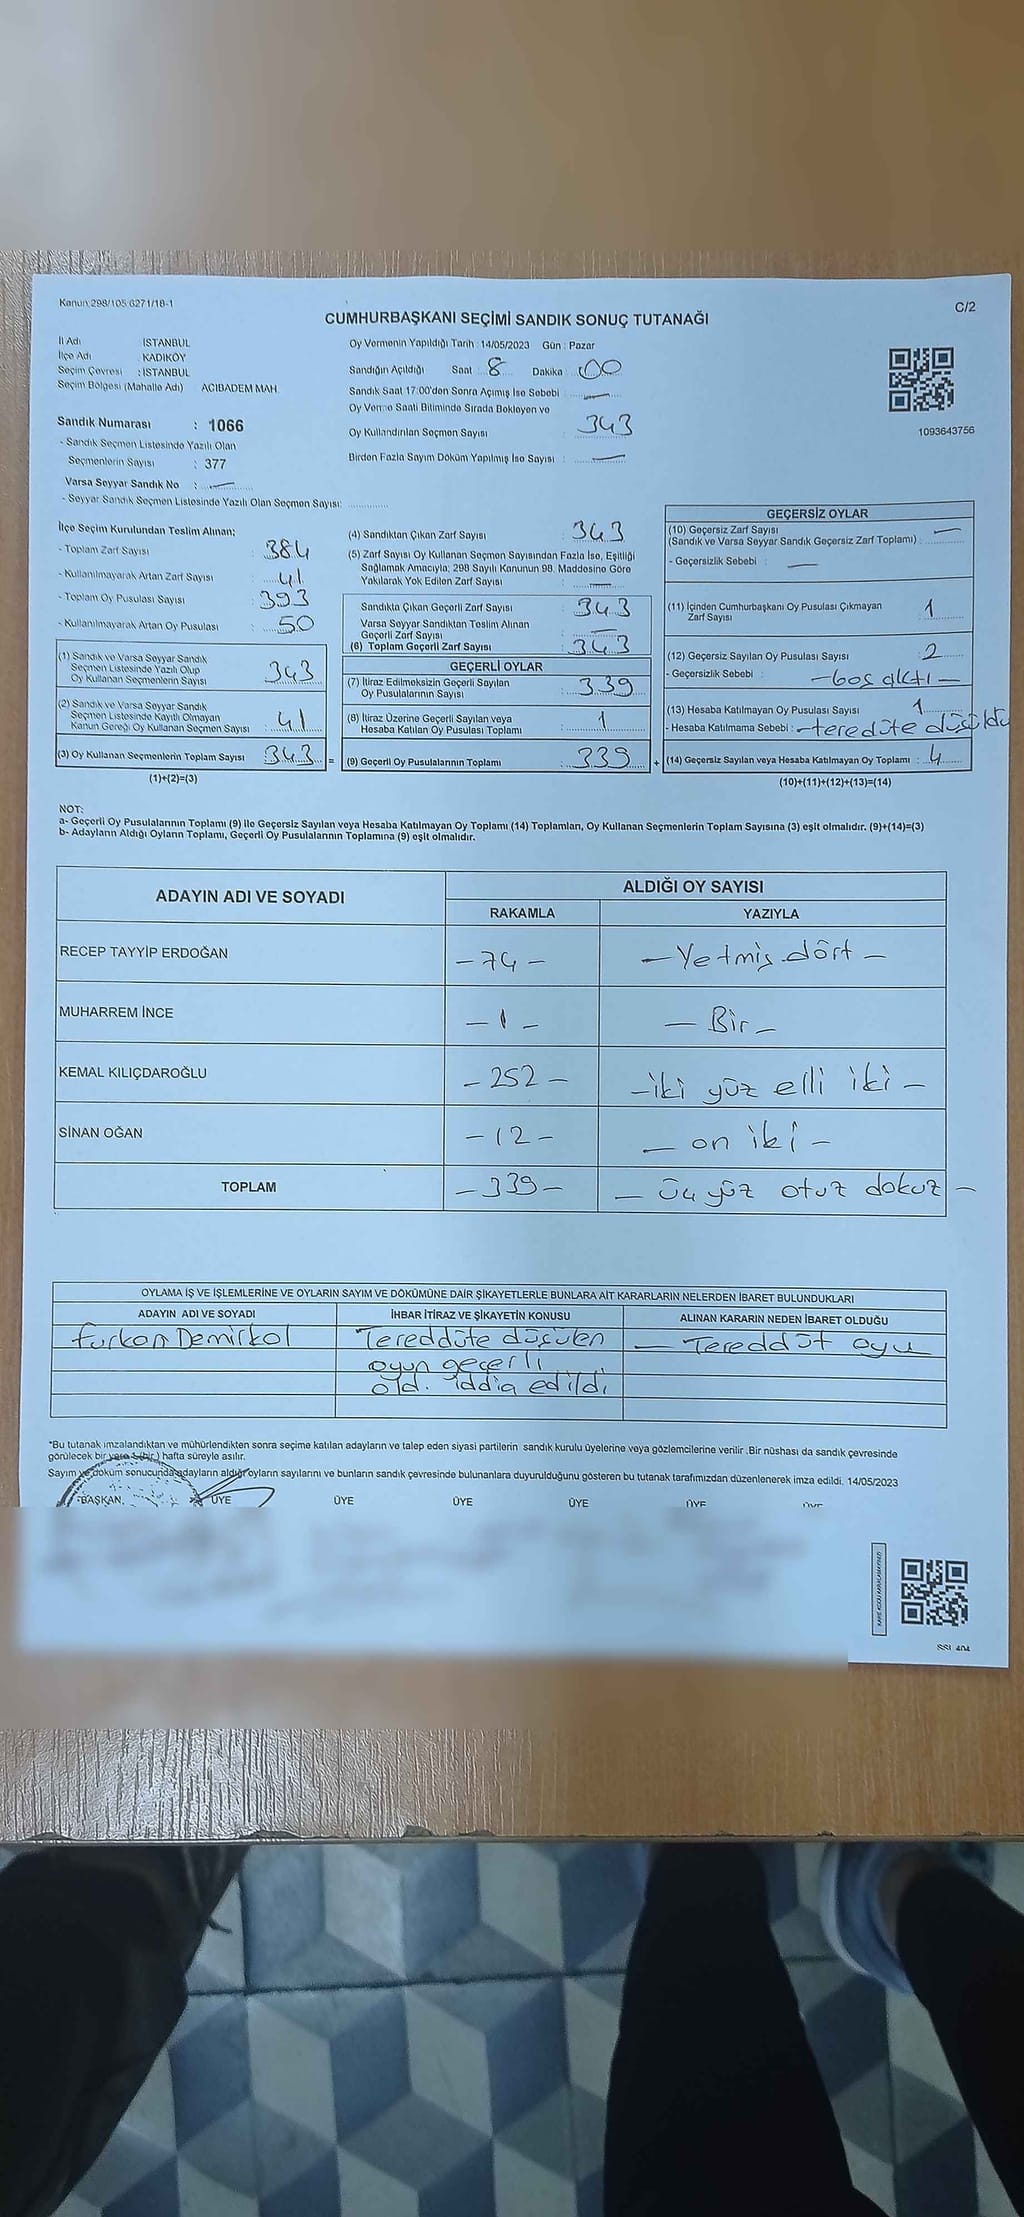 Kanun:298/105.6271/18-1
C/2
CUMHURBAŞKANI SEÇİMİ SANDIK SONUÇ TUTANAĞI
İl Adı İSTANBUL
İlçe Adı KADIKÖY
Seçim Çevresi : İSTANBUL
Seçim Bölgesi (Mahalle Adı) ACIBADEM MAH.
Sandık Numarası : 1066
- Sandık Seçmen Listesinde Yazılı Olan
Seçmenlerin Sayısı : 377
Varsa Seyyar Sandık No : —
- Seyyar Sandık Seçmen Listesinde Yazılı Olan Seçmen Sayısı:
Oy Vermenin Yapıldığı Tarih : 14/05/2023 Gün : Pazar
Sandığın Açıldığı Saat 8 Dakika 00
Sandık Saat 17:00'den Sonra Açımış İse Sebebi —
Oy Verme Saati Bitiminde Sırada Bekleyen ve
Oy Kullandırılan Seçmen Sayısı : 343
Birden Fazla Sayım Döküm Yapılmış İse Sayısı : —
1093643756
İlçe Seçim Kurulundan Teslim Alınan;
- Toplam Zarf Sayısı : 384
- Kullanılmayarak Artan Zarf Sayısı : 41
- Toplam Oy Pusulası Sayısı : 393
- Kullanılmayarak Artan Oy Pusulası : 50
(1) Sandık ve Varsa Seyyar Sandık
Seçmen Listesinde Yazılı Olup
Oy Kullanan Seçmenlerin Sayısı 343
(2) Sandık ve Varsa Seyyar Sandık
Seçmen Listesinde Kayıtlı Olmayan
Kanun Gereği Oy Kullanan Seçmen Sayısı 41
(3) Oy Kullanan Seçmenlerin Toplam Sayısı 343 =
(1)+(2)=(3)
(4) Sandıktan Çıkan Zarf Sayısı : 343
(5) Zarf Sayısı Oy Kullanan Seçmen Sayısından Fazla İse, Eşitliği
Sağlamak Amacıyla; 298 Sayılı Kanunun 98. Maddesine Göre
Yakılarak Yok Edilen Zarf Sayısı : —
Sandıkta Çıkan Geçerli Zarf Sayısı : 343
Varsa Seyyar Sandıktan Teslim Alınan
Geçerli Zarf Sayısı —
(6) Toplam Geçerli Zarf Sayısı : 343
GEÇERLİ OYLAR
(7) İtiraz Edilmeksizin Geçerli Sayılan
Oy Pusulalarının Sayısı : 339
(8) İtiraz Üzerine Geçerli Sayılan veya
Hesaba Katılan Oy Pusulası Toplamı : 1
(9) Geçerli Oy Pusulalarının Toplamı : 339 +
GEÇERSİZ OYLAR
(10) Geçersiz Zarf Sayısı —
(Sandık ve Varsa Seyyar Sandık Geçersiz Zarf Toplamı) :
- Geçersizlik Sebebi : —
(11) İçinden Cumhurbaşkanı Oy Pusulası Çıkmayan
Zarf Sayısı 1
(12) Geçersiz Sayılan Oy Pusulası Sayısı : 2
- Geçersizlik Sebebi : — boş çıktı —
(13) Hesaba Katılmayan Oy Pusulası Sayısı : 1
- Hesaba Katılmama Sebebi : — teredüte düşüldü
(14) Geçersiz Sayılan veya Hesaba Katılmayan Oy Toplamı : 4
(10)+(11)+(12)+(13)=(14)
NOT:
a- Geçerli Oy Pusulalarının Toplamı (9) ile Geçersiz Sayılan veya Hesaba Katılmayan Oy Toplamı (14) Toplamları, Oy Kullanan Seçmenlerin Toplam Sayısına (3) eşit olmalıdır. (9)+(14)=(3)
b- Adayların Aldığı Oyların Toplamı, Geçerli Oy Pusulalarının Toplamına (9) eşit olmalıdır.
ADAYIN ADI VE SOYADI
ALDIĞI OY SAYISI
RAKAMLA YAZIYLA
RECEP TAYYİP ERDOĞAN - 74 - - Yetmiş dört -
MUHARREM İNCE - 1 - - Bir -
KEMAL KILIÇDAROĞLU - 252 - - iki yüz elli iki -
SİNAN OĞAN - 12 - - on iki -
TOPLAM - 339 - - üç yüz otuz dokuz -
OYLAMA İŞ VE İŞLEMLERİNE VE OYLARIN SAYIM VE DÖKÜMÜNE DAİR ŞİKAYETLERLE BUNLARA AİT KARARLARIN NELERDEN İBARET BULUNDUKLARI
ADAYIN ADI VE SOYADI İHBAR İTİRAZ VE ŞİKAYETİN KONUSU ALINAN KARARIN NEDEN İBARET OLDUĞU
Furkan Demirkol Tereddüte düşülen — Tereddüt oyu
oyun geçerli
old. iddia edildi
*Bu tutanak imzalandıktan ve mühürlendikten sonra seçime katılan adayların ve talep eden siyasi partilerin sandık kurulu üyelerine veya gözlemcilerine verilir .Bir nüshası da sandık çevresinde
görülecek bir yere 1 (bir) hafta süreyle asılır.
Sayım ve döküm sonucunda adayların aldığı oyların sayılarını ve bunların sandık çevresinde bulunanlara duyurulduğunu gösteren bu tutanak tarafımızdan düzenlenerek imza edildi. 14/05/2023
BAŞKAN, ÜYE ÜYE ÜYE ÜYE ÜYE ÜYE
SSI 404